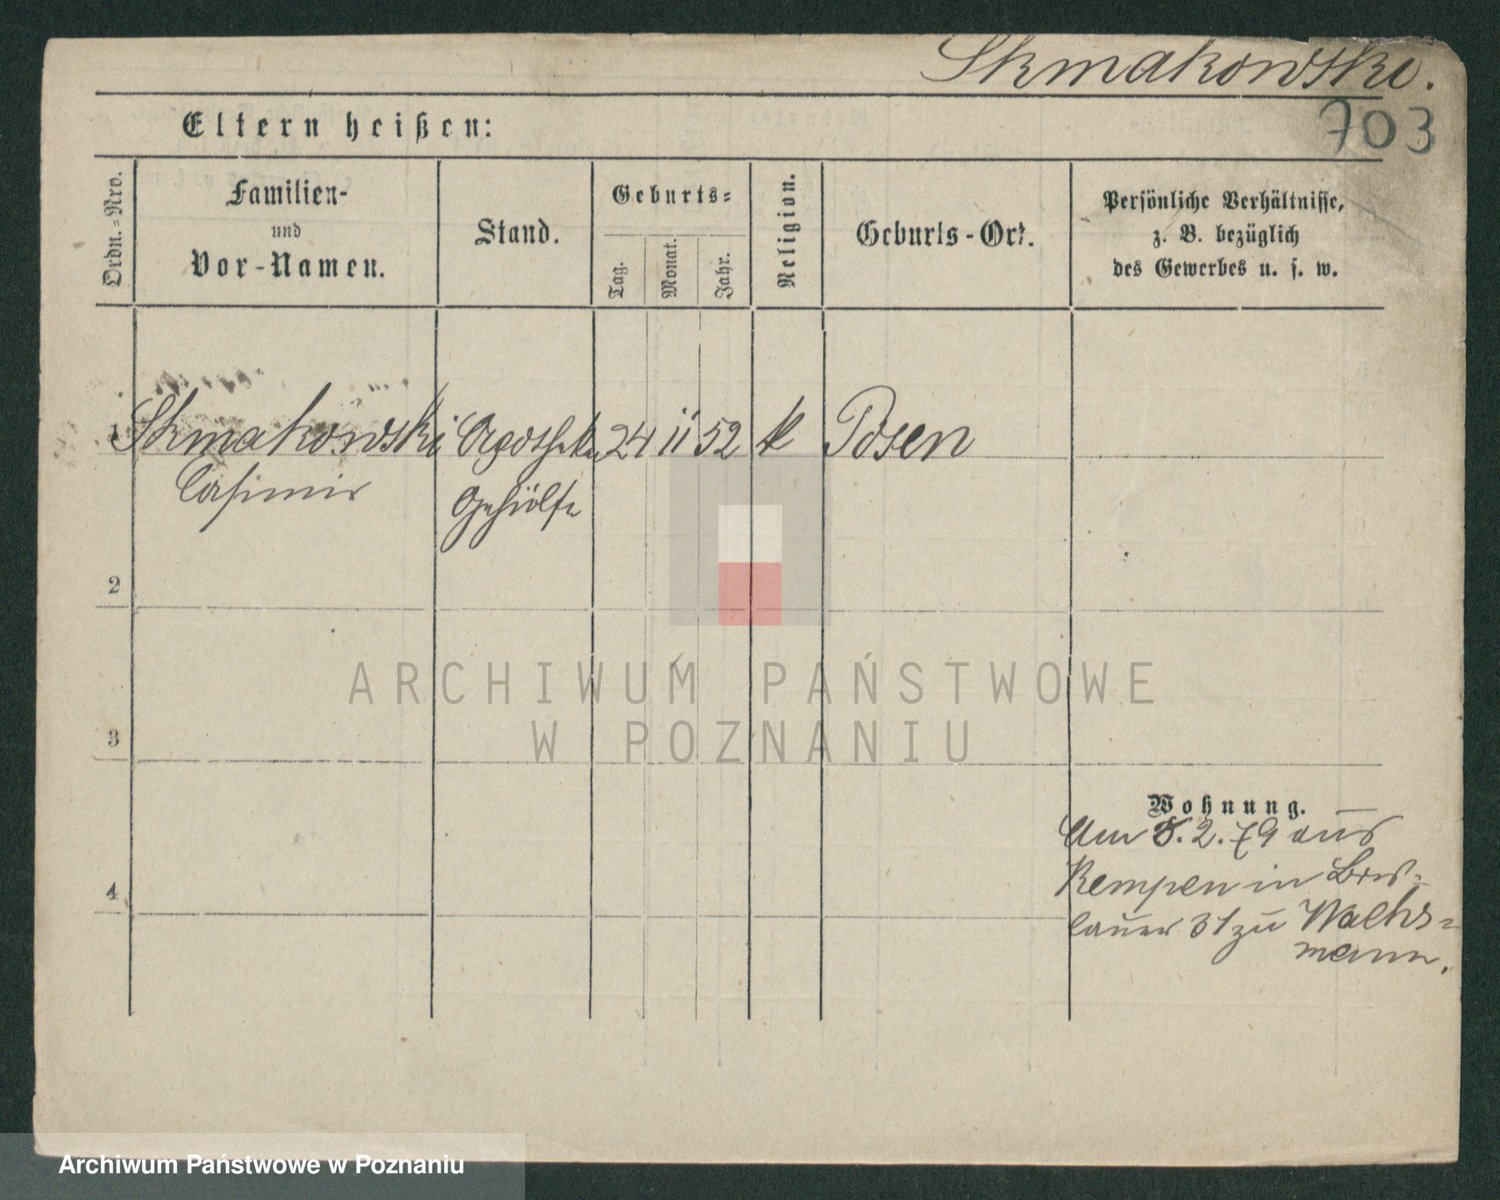 Skmakowski.
703
Eltern heißen:
Ordn.=Nro.
Familien-
und
Vor-Namen.
Stand.
Geburts=
Tag.
Monat.
Jahr.
Religion.
Geburts-Ort.
Persönliche Verhältnisse,
z. B. bezüglich
des Gewerbes u. s. w.
1 Skmakowski Apotheken 24 11 52 k Posen
Casimir Gehülfe
2
ARCHIWUM PAŃSTWOWE
W POZNANIU
3
Wohnung.
Am 8.2.79 aus
Kempen in Bres=
lauer 31 zu Wachs=
mann.
4
Archiwum Państwowe w Poznaniu